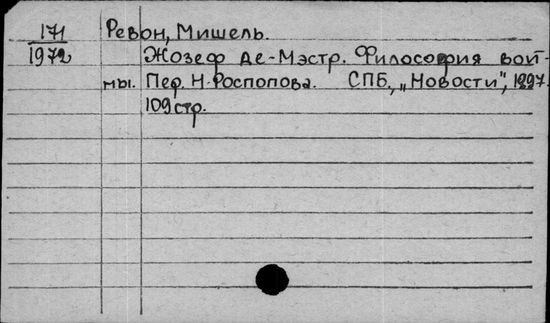 171 Ревон, Мишель.
1972 Жозеф де-Мэстр. Философия вой-
ны. Пер. Н. Роспопова. СПБ, „Новости", 1897.
109 стр.